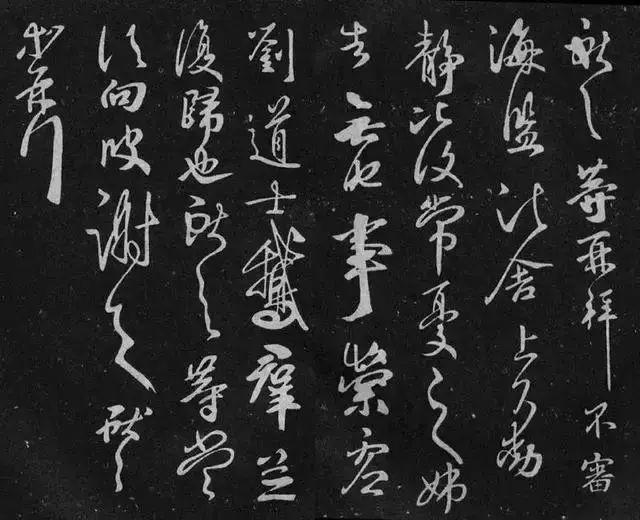 獻之等再拜不審
海鹽諸舍上下動
靜比復常憂之姊
告無他事崇虛
劉道士鵝羣並
復歸也獻之等當
須向彼謝之獻之
等再拜